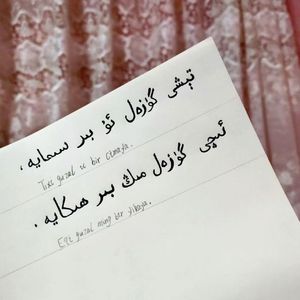 تېشى گۈزەل ئۇ بىر سىمايە،
Tixi guzal u bir Cimaya.
ئىچى گۈزەل مىڭ بىر ھىكايە.
guzal ming bir